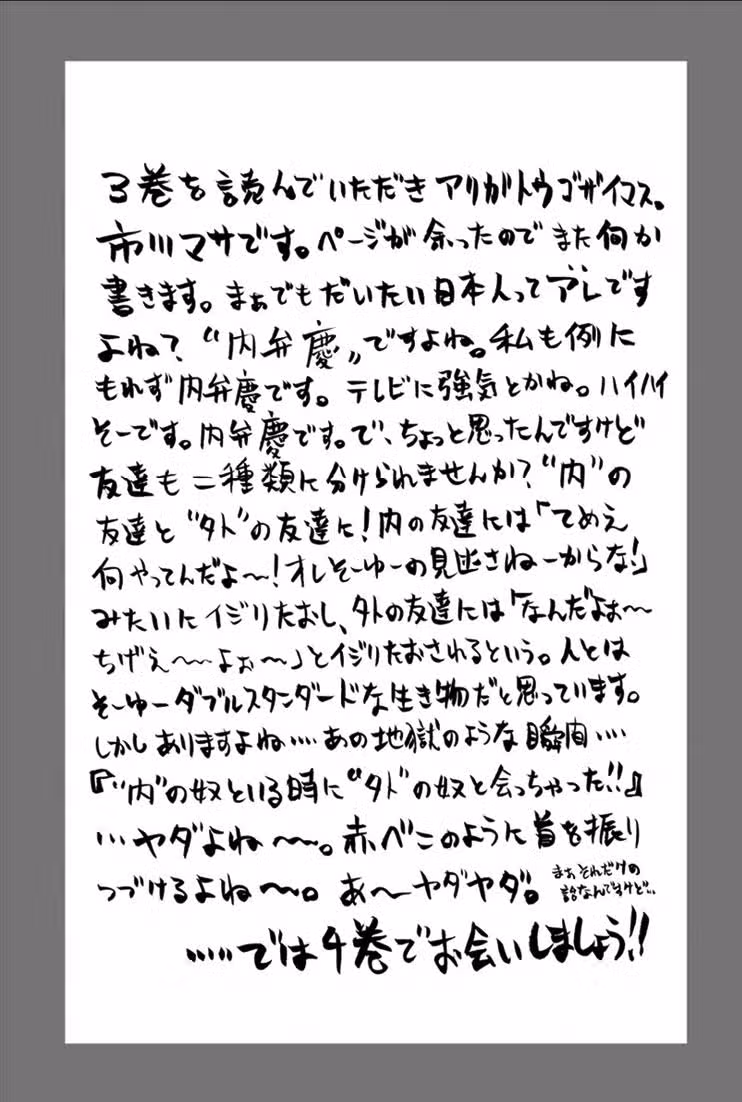 3巻を読んでいただきアリガトウゴザイマス。
市川マサです。ページが余ったのでまた何か
書きます。まぁでもだいたい日本人ってアレです
よね?“内弁慶”ですよね。私も例に
もれず内弁慶です。テレビに強気とかね。ハイハイ
そーです。内弁慶です。で、ちょっと思ったんですけど
友達も二種類に分けられませんか?“内”の
友達と“外”の友達に!内の友達には「てめえ
何やってんだよ〜!オレそーゆーの見逃さねーからな!」
みたいにイジりたおし、外の友達には「なんだよぉ〜
ちげぇ〜〜よぉ〜」とイジりたおされるという。人とは
そーゆーダブルスタンダードな生き物だと思っています。
しかしありますよね……あの地獄のような瞬間……
『“内”の奴といる時に“外”の奴と会っちゃった!!』
…ヤダよね〜〜。赤べこのように首を振り
つづけるよね〜〜。あ〜ヤダヤダ。
まぁそれだけの
話なんですけど…
……では4巻でお会いしましょう!!